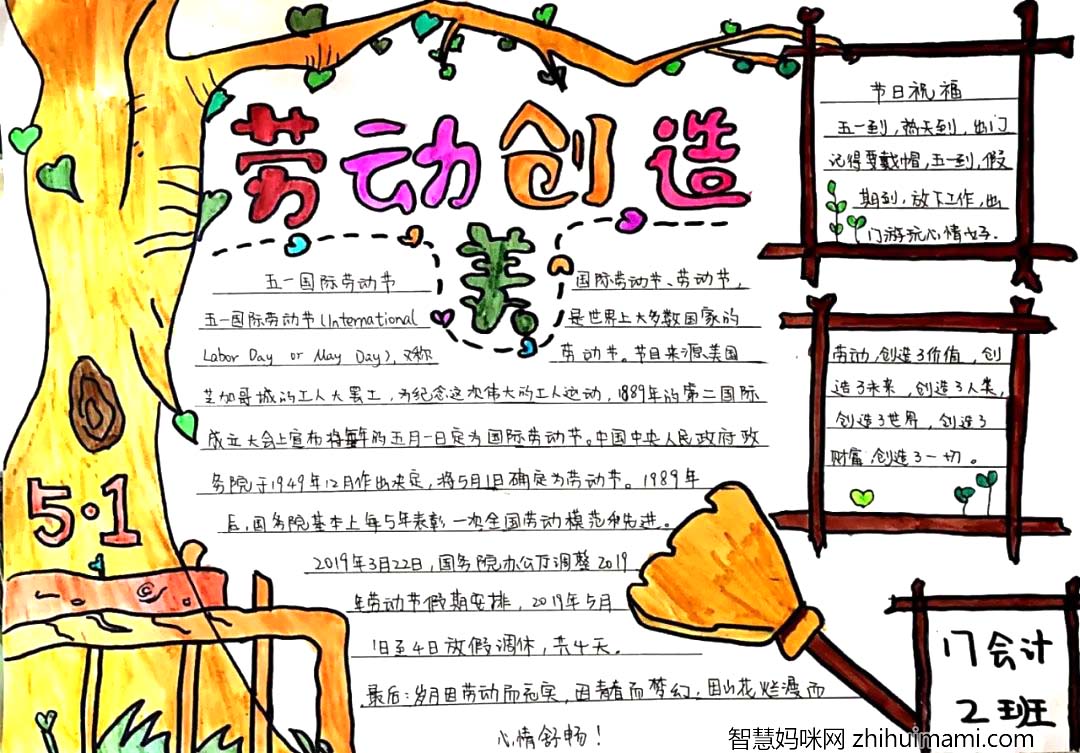 劳动创造
美
五一国际劳动节
五一国际劳动节(International
Labor Day or May Day),又称
国际劳动节、劳动节,
是世界上大多数国家的
劳动节。节日来源美国
芝加哥城的工人大罢工,为纪念这次伟大的工人运动,1889年的第二国际
成立大会上宣布将每年的五月一日定为国际劳动节。中国中央人民政府政
务院于1949年12月作出决定,将5月1日确定为劳动节。1989年
后,国务院基本上每5年表彰一次全国劳动模范和先进。
2019年3月22日,国务院办公厅调整2019
年劳动节假期安排,2019年5月
1日至4日放假调休,共4天。
最后:岁月因劳动而充实,因青春而梦幻,因山花烂漫而
心情舒畅!
节日祝福
五一到,热天到,出门
记得要戴帽,五一到,假
期到,放下工作,出
门游玩心情好.
劳动,创造了价值,创
造了未来,创造了人类,
创造了世界,创造了
财富,创造了一切。
5·1
17会计
2班
智慧妈咪网 zhihuimami.com